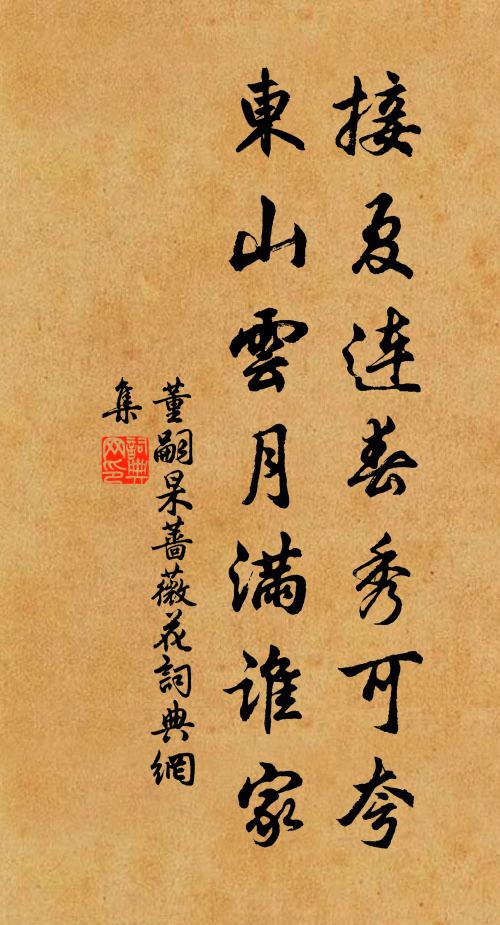 接夏連春秀可夸
東山雲月滿誰家
董嗣杲薔薇花詞典網
集
詞典網印